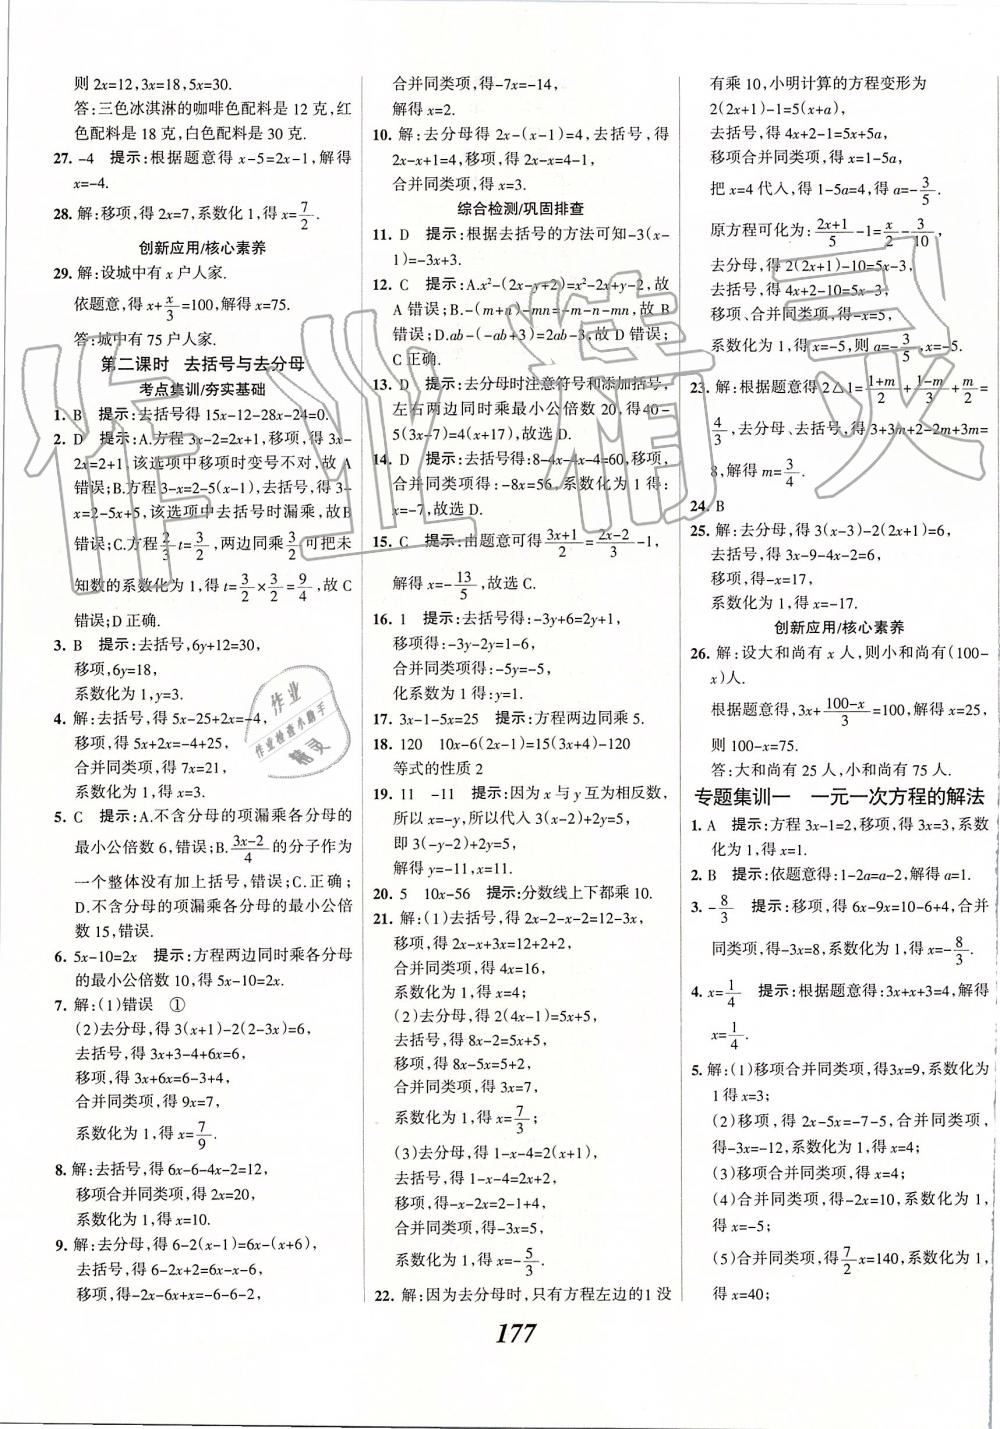 则 2x=12,3x=18,5x=30.
答:三色冰淇淋的咖啡色配料是 12 克,红
色配料是 18 克,白色配料是 30 克.
27. -4 提示:根据题意得 x-5=2x-1,解得
x=-4.
28. 解:移项,得 2x=7,系数化 1,得 x=7/2.
创新应用/核心素养
29. 解:设城中有 x 户人家.
依题意,得 x+x/3=100,解得 x=75.
答:城中有 75 户人家.
第二课时 去括号与去分母
考点集训/夯实基础
1. B 提示:去括号得 15x-12-28x-24=0.
2. D 提示:A.方程 3x-2=2x+1,移项,得 3x-
2x=2+1,该选项中移项时变号不对,故 A
错误;B.方程 3-x=2-5(x-1),去括号,得 3-
x=2-5x+5,该选项中去括号时漏乘,故B
错误;C.方程2/3 t=3/2,两边同乘3/2可把未
知数的系数化为 1,得 t=3/2×3/2=9/4,故 C
错误;D正确.
3. B 提示:去括号,6y+12=30,
移项,6y=18,
系数化为 1,y=3.
4. 解:去括号,得 5x-25+2x=-4,
移项,得 5x+2x=-4+25,
合并同类项,得 7x=21,
系数化为 1,得 x=3.
5. C 提示:A.不含分母的项漏乘各分母的
最小公倍数 6,错误;B.(3x-2)/4的分子作为
一个整体没有加上括号,错误;C.正确;
D.不含分母的项漏乘各分母的最小公倍
数 15,错误.
6. 5x-10=2x 提示:方程两边同时乘各分母
的最小公倍数 10,得 5x-10=2x.
7. 解:(1)错误 ①
(2)去分母,得 3(x+1)-2(2-3x)=6,
去括号,得 3x+3-4+6x=6,
移项,得 3x+6x=6-3+4,
合并同类项,得 9x=7,
系数化为 1,得 x=7/9.
8. 解:去括号,得 6x-6-4x-2=12,
移项合并同类项,得 2x=20,
系数化为 1,得 x=10.
9. 解:去分母,得 6-2(x-1)=6x-(x+6),
去括号,得 6-2x+2=6x-x-6,
移项,得-2x-6x+x=-6-6-2,
合并同类项,得-7x=-14,
解得 x=2.
10. 解:去分母得 2x-(x-1)=4,去括号,得
2x-x+1=4,移项,得 2x-x=4-1,
合并同类项,得 x=3.
综合检测/巩固排查
11. D 提示:根据去括号的方法可知-3(x-
1)=-3x+3.
12. C 提示:A.x²-(2x-y+2)=x²-2x+y-2,故
A 错误;B.-(m+n)-mn=-m-n-mn,故 B
错误;D.ab-(-ab+3)=2ab-3,故 D 错误;
C 正确.
13. D 提示:去分母时注意符号和添加括号,
左右两边同时乘最小公倍数 20,得40-
5(3x-7)=4(x+17),故选 D.
14. D 提示:去括号得:8-4x-4x-4=60,
移项合并得:-8x=56,系数化为 1 得:
x=-7,故选 D.
15. C 提示:由题意可得(3x+1)/2=(2x-2)/3-1,
解得 x=-13/5,故选 C.
16. 1 提示:去括号得:-3y+6=2y+1,
移项得:-3y-2y=1-6,
合并同类项得:-5y=-5,
化系数为 1 得:y=1.
17. 3x-1-5x=25 提示:方程两边同乘 5.
18. 120 10x-6(2x-1)=15(3x+4)-120
等式的性质 2
19. 11 -11 提示:因为 x 与 y 互为相反数,
所以 x=-y,所以代入 3(x-2)+2y=5,
即 3(-y-2)+2y=5,
解得 y=-11,x=11.
20. 5 10x-56 提示:分数线上下都乘 10.
21. 解:(1)去括号,得 2x-2-x-2=12-3x,
移项,得 2x-x+3x=12+2+2,
合并同类项,得 4x=16,
系数化为 1,得 x=4;
(2)去分母,得 2(4x-1)=5x+5,
去括号,得 8x-2=5x+5,
移项,得 8x-5x=5+2,
合并同类项,得 3x=7,
系数化为 1,得 x=7/3;
(3)去分母,得 1-x-4=2(x+1),
去括号,得 1-x-4=2x+2,
移项,得-x-2x=2-1+4,
合并同类项,得-3x=5,
系数化为 1,得 x=-5/3.
22. 解:因为去分母时,只有方程左边的1 没
有乘 10,小明计算的方程变形为
2(2x+1)-1=5(x+a),
去括号,得 4x+2-1=5x+5a,
移项合并同类项,得 x=1-5a,
把 x=4 代人,得 1-5a=4,得 a=-3/5.
原方程可化为:(2x+1)/5-1=x/2-3/10,
去分母,得 2(2x+1)-10=5x-3,
去括号,得 4x+2-10=5x-3,
移项、合并同类项,得-x=5,
系数化为 1,得 x=-5,则 a=-3/5,x=-5.
23. 解:根据题意得 2△1=(1+m)/2+(1-m)/3+m/2=
4/3,去分母、去括号,得 3+3m+2-2m+3m=
8,解得 m=3/4.
24. B
25. 解:去分母,得 3(x-3)-2(2x+1)=6,
去括号,得 3x-9-4x-2=6,
移项,得-x=17,
系数化为 1,得 x=-17.
创新应用/核心素养
26. 解:设大和尚有 x 人,则小和尚有(100-
x)人.
根据题意,得 3x+(100-x)/3=100,解得 x=25,
则 100-x=75.
答:大和尚有 25 人,小和尚有 75 人.
专题集训一 一元一次方程的解法
1. A 提示:方程 3x-1=2,移项,得 3x=3,系数
化为 1,得 x=1.
2. B 提示:依题意,得:1-2a=a-2,解得 a=1.
3. -8/3 提示:移项,得 6x-9x=10-6+4,合并
同类项,得-3x=8,系数化为 1,得 x=-8/3.
4. x=1/4 提示:根据题意得:3x+x+3=4,解得
x=1/4.
5. 解:(1)移项合并同类项,得3x=9,系数化为
1得 x=3;
(2)移项,得 2x-5x=-7-5,合并同类项,
得-3x=-12,系数化为 1,得 x=4;
(3)移项合并同类项,得 x=4;
(4)合并同类项,得-2x=10,系数化为 1,
得 x=-5;
(5)合并同类项,得7/2 x=140,系数化为 1,
得 x=40;
177
作业精灵
作业
作业检查小助手
精灵